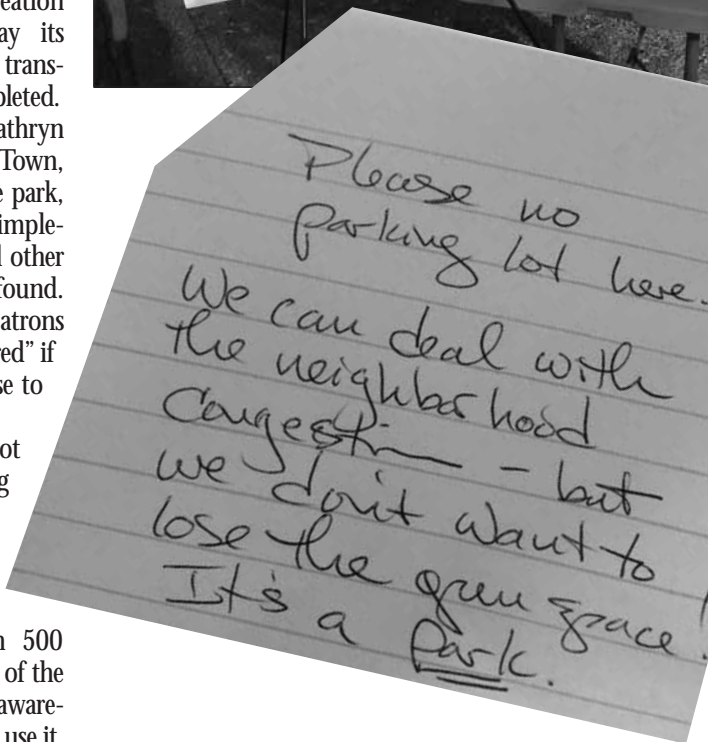 eation
ay its
trans-
pleted.
athryn
Town,
e park,
imple-
l other
found.
atrons
red” if
se to
ot
g
n 500
of the
aware-
use it
Please no
parking lot here.
We can deal with
the neighborhood
Congestion - but
we don't want to
lose the green space!
It's a Park.